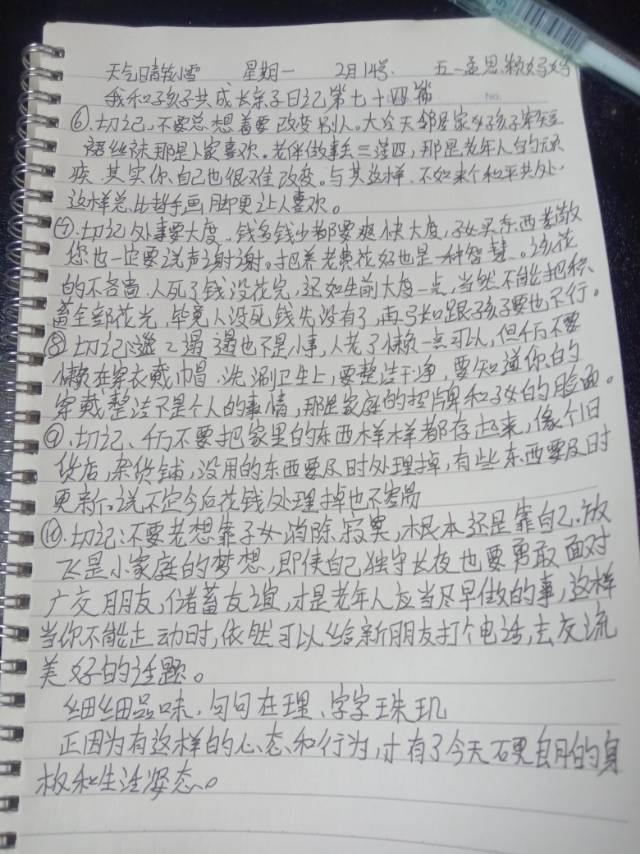 天气晴转小雪 星期一 2月14号. 五一孟思颖妈妈
我和孩子共成长亲子日记第七十四篇
⑥.切记,不要总想着要改变别人。大冷天邻居家女孩子穿短
裙丝袜那是人家喜欢。老伴做事丢三落四,那是老年人的顽
疾,其实你自己也很难改变。与其这样,不如来个和平共处,
这样总比指手画脚更让人喜欢。
⑦.切记处事要大度,钱多钱少都要爽快大度,子女买东西孝敬
您也一定要说声谢谢。把养老费花好也是一种智慧。该花
的不吝啬,人死了钱没花完,还如生前大度一点,当然不能把积
蓄全部花光,毕竟人没死钱先没有了,再弓长口跟孩子要也不行。
⑧.切记邋乙遢 遢也不是小事,人老了懒一点可以,但千万不要
懒在穿衣戴巾帽,洗涮卫生上,要整洁干净,要知道你的
穿戴整洁不是个人的事情,那是家庭的招牌和子女的脸面。
⑨.切记、千万不要把家里的东西样样都存起来,像个旧
货店,杂货铺,没用的东西要及时处理掉,有些东西要及时
更新。说不定今后花钱处理掉也不容易
⑩.切记:不要老想靠子女消除寂寞,根本还是靠自己.放
飞是小家庭的梦想,即使自己独守长夜也要勇敢面对
广交朋友,储蓄友谊,才是老年人应当尽早做的事,这样
当你不能走动时,依然可以给新朋友打个电话,去交流
美好的话题。
细细品味,句句在理、字字珠玑
正因为有这样的心态和行为,才有了今天硬朗的身
板和生活姿态。